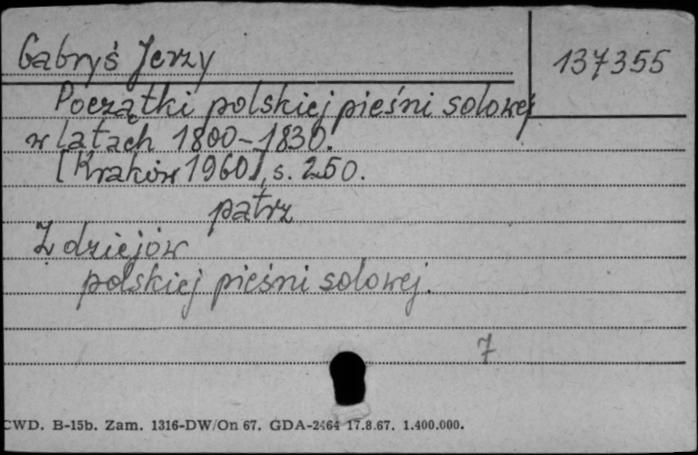 Gabryś Jerzy
137355
Początki polskiej pieśni solowej
w latach 1800-1830.
[Kraków 1960], s. 250.
patrz
Z dziejów
polskiej pieśni solowej.
7
CWD. B-15b. Zam. 1316-DW/On 67. GDA-2464 17.8.67. 1.400.000.